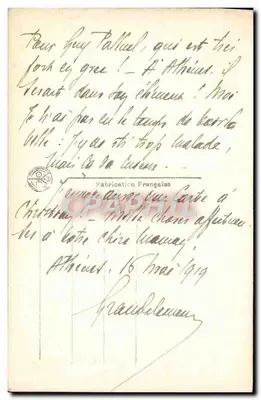 Pour Guy Pathuel, qui est très
fort en grec ! — A Athènes. il
serait dans son élément ! Moi
je n'ai pas eu le temps de voir la
ville : j'y ai été trop malade,
mais ça va mieux.
Fabrication Française
J'envoie aussi une carte à
choses affectueu-
ses à votre chère maman,
Athènes, 16 mai 1919